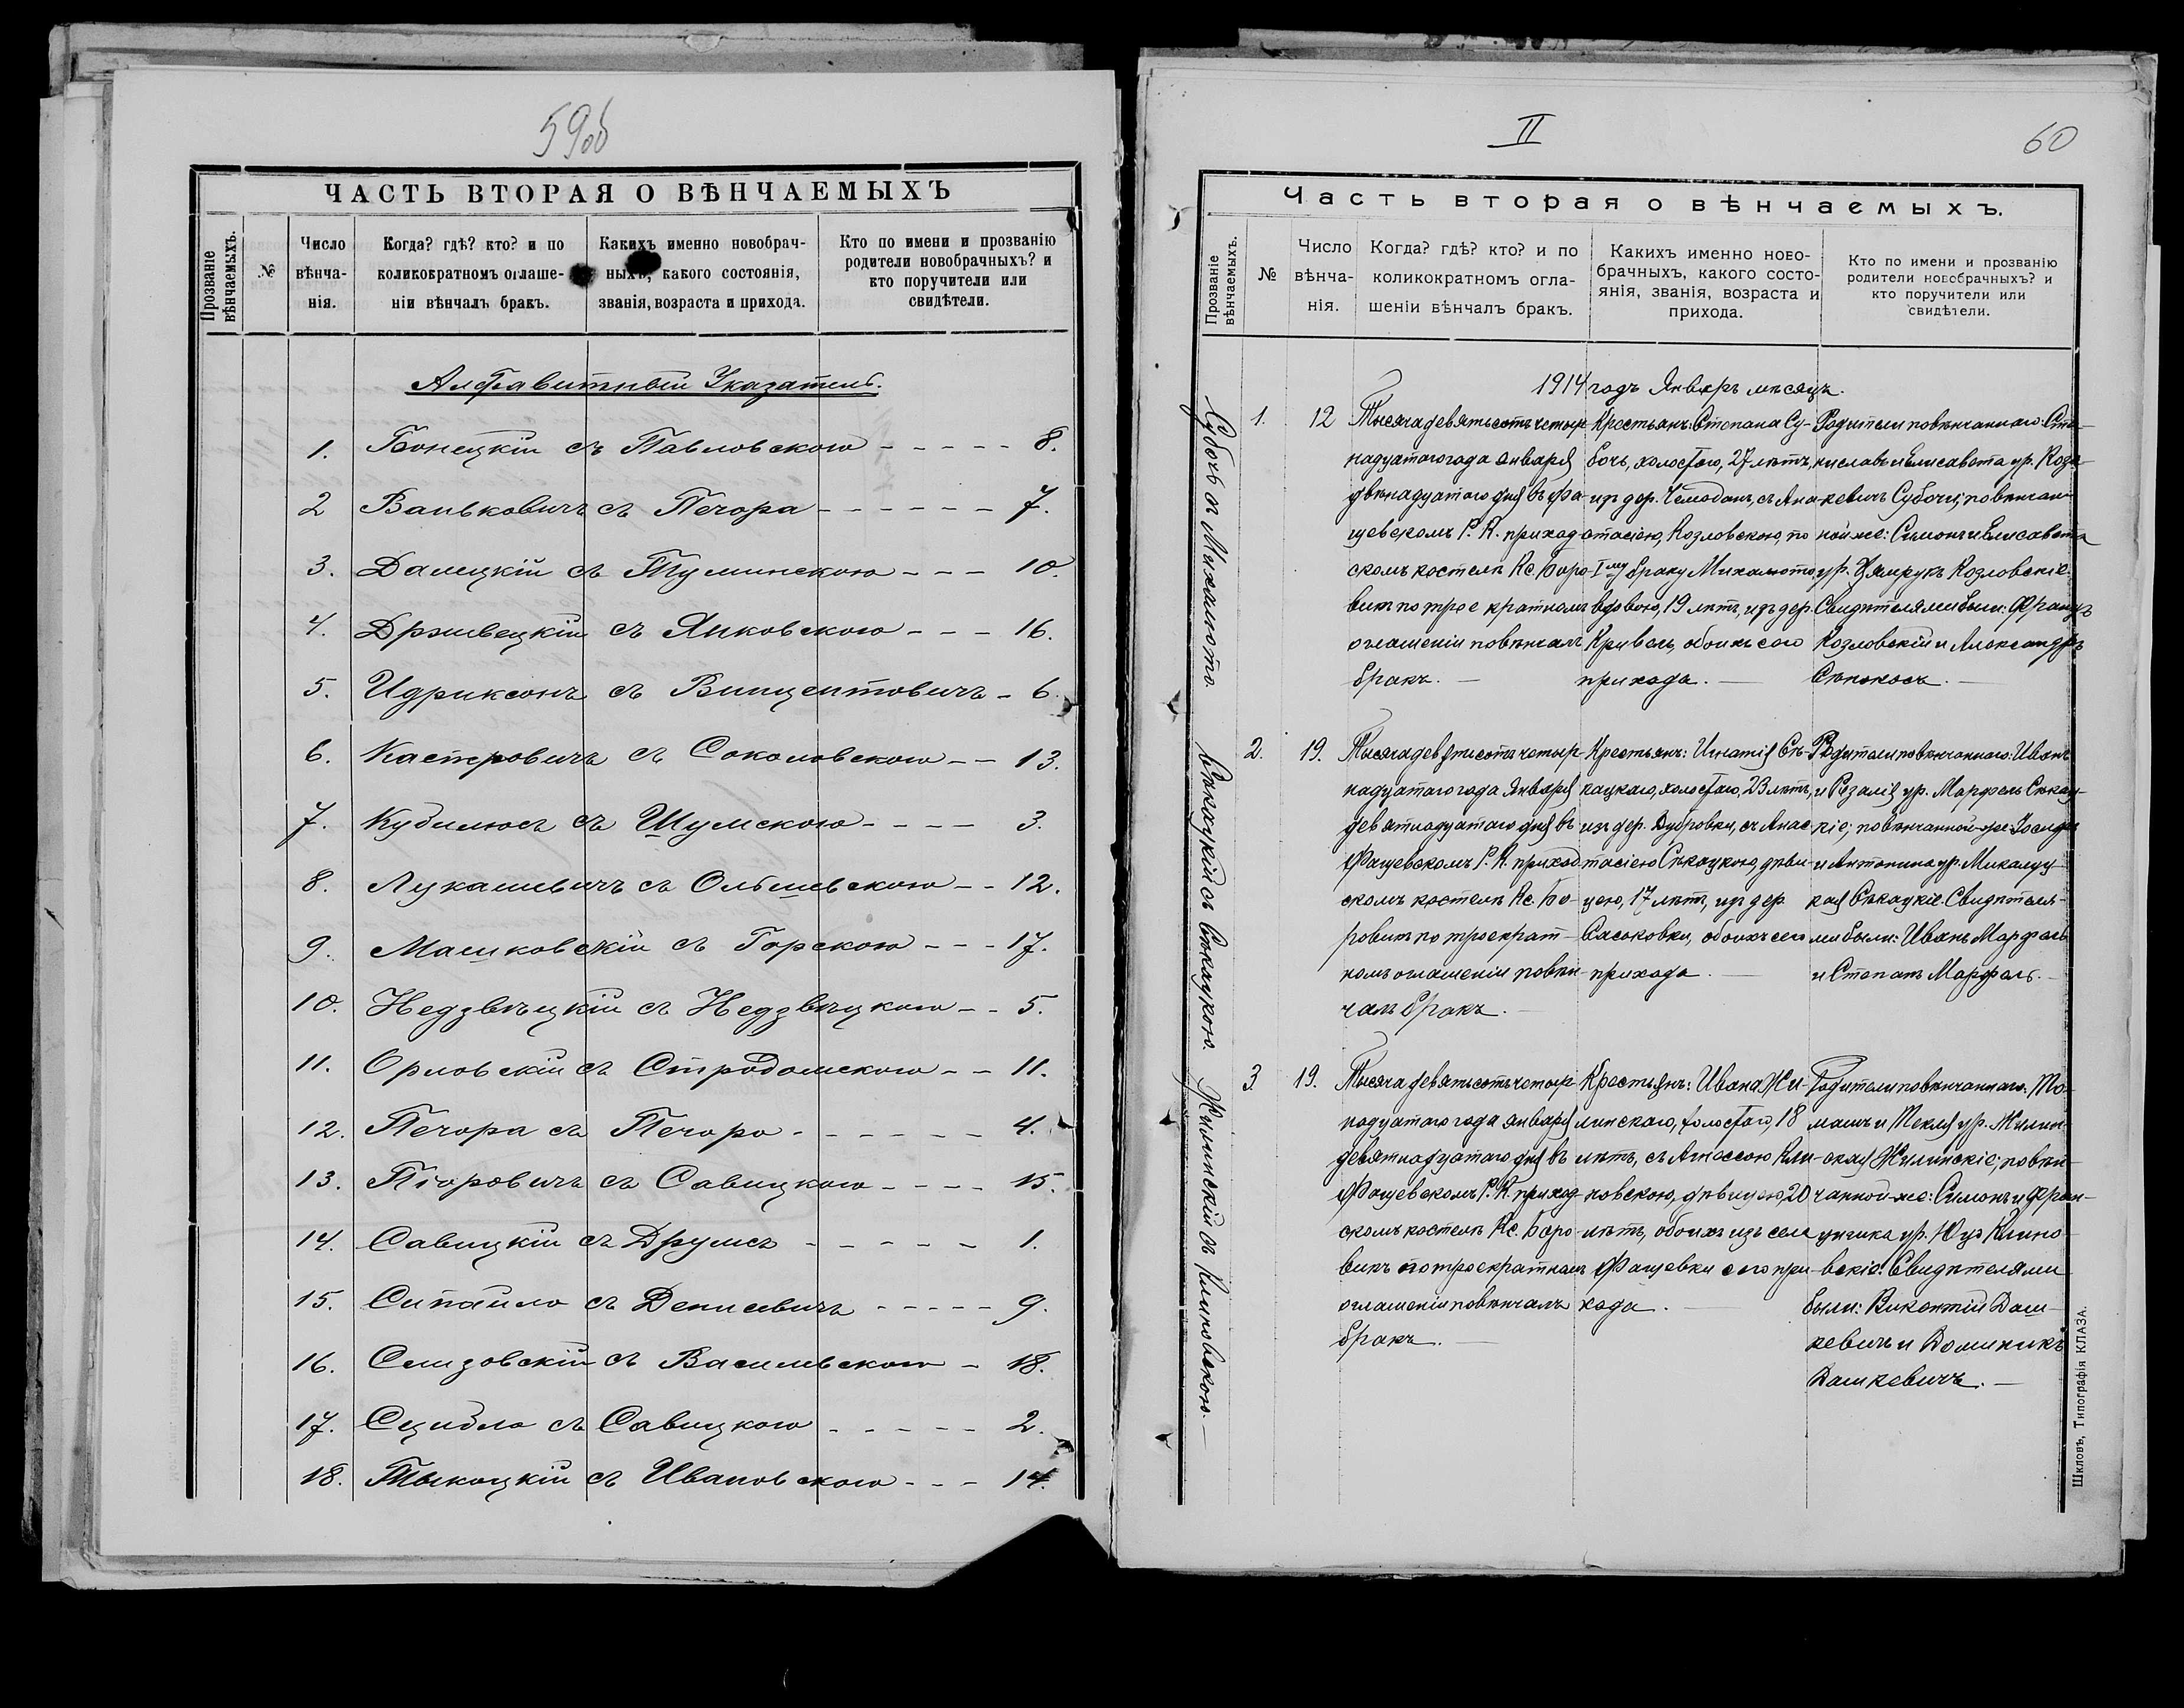 59об
ЧАСТЬ ВТОРАЯ О ВѢНЧАЕМЫХЪ
Прозваніе вѣнчаемыхъ.
№
Число вѣнча-
нія.
Когда? гдѣ? кто? и по
коликократномъ оглаше-
ніи вѣнчалъ бракъ.
Какихъ именно новобрач-
ныхъ, какого состоянія,
званія, возраста и прихода.
Кто по имени и прозванію
родители новобрачныхъ? и
кто поручители или
свидѣтели.
Алфавитный Указатель.
1. Бонецкій съ Павловскою - - - - - 8.
2 Ваньковичъ съ Печора - - - - - - 7.
3. Далецкій съ Туминскою - - - 10.
4. Држевецкій съ Янковскою - - - 16.
5. Идриксонъ съ Винцентовичъ - 6
6. Кастровичъ съ Соколовскою - - 13.
7. Кубилюсъ съ Шумскою - - - - 3.
8. Лукашевичъ съ Ольшевскою - - 12.
9. Машковскій съ Горскою - - - 17.
10. Недзвѣцкій съ Недзвѣцкою - - 5.
11. Орловскій съ Стродомскою - - 11.
12. Печора съ Печоро - - - - - - 4.
13. Піоровичъ съ Савицкою - - - - 15.
14. Савицкій съ Друмсъ - - - - - 1.
15. Сипайло съ Денисевичъ - - - - - 9.
16. Слизовскій съ Васильевскою - 18.
17. Сцибло съ Савицкою - - - - - 2.
18. Тыкоцкій съ Ивановскою - - - 14.
II
60
Часть вторая о вѣнчаемыхъ.
Прозваніе вѣнчаемыхъ.
№
Число
вѣнча-
нія.
Когда? гдѣ? кто? и по
коликократномъ огла-
шеніи вѣнчалъ бракъ.
Какихъ именно ново-
брачныхъ, какого состо-
янія, званія, возраста и
прихода.
Кто по имени и прозванію
родители новобрачныхъ? и
кто поручители или
свидѣтели.
1914 годъ Январь мѣсяцъ.
Субочъ съ Михалюто.
1. 12
Тысяча девятьсотъ четыр-
надцатаго года января
двѣнадцатаго дня въ Фа-
щевскомъ Р. К. приход-
скомъ костелѣ Кс. Боро-
викъ по трое кратномъ
оглашеніи повѣнчалъ
бракъ.
Крестьянъ: Степана Су-
бочъ, холостаго, 27 лѣтъ,
изъ дер. Чемоданъ, съ Ана-
стасіею, Козловскою, по
Iму браку Михалюто,
вдовою, 19 лѣтъ, изъ дер.
Кривель, обоихъ сего
прихода.
Родители повѣнчаннаго: Ста-
ниславъ и Елисавета ур. Коза-
кевичъ Субочи; повѣнчан-
ной же: Симонъ и Елисавета
ур. Козловскіе.
Свидѣтелями были: Францъ
Козловскій и Александръ
Сѣнокосъ.
Сѣкацкій съ Сѣкацкою.
2. 19.
Тысяча девятьсотъ четыр-
надцатаго года Января
девятнадцатаго дня въ
Фащевскомъ Р. К. приход-
скомъ костелѣ Кс. Бо-
ровикъ по троекрат-
номъ оглашеніи повѣн-
чалъ бракъ.
Крестьянъ: Игнатія Сѣ-
кацкаго, холостаго, 23 лѣтъ,
изъ дер. Дубровки, съ Анас-
тасіею Сѣкацкою, дѣви-
цею, 17 лѣтъ, изъ дер.
Саськовки, обоихъ сего
прихода.
Родители повѣнчаннаго: Иванъ
и Розалія ур. Марфель Сѣкац-
кіе; повѣнчанной-же Іосифъ
и Антонина ур. Микалуц-
кая Сѣкацкіе. Свидѣтеля-
ми были: Иванъ Марфель
и Степанъ Марфель.
Жилинскій съ Климовскою.
3. 19.
Тысяча девятьсотъ четыр-
надцатаго года января
девятнадцатаго дня въ
Фащевскомъ Р. К. приход-
скомъ костелѣ Кс. Боро-
викъ по троекратномъ
оглашеніи повѣнчалъ
бракъ.
Крестьянъ: Ивана Жи-
линскаго, холостаго, 18
лѣтъ, съ Агаѳіею Кли-
новскою, дѣвицею, 20
лѣтъ, обоихъ изъ села
Фащевки сего при-
хода.
Родители повѣнчаннаго: То-
машъ и Текля ур. Жилин-
ская Жилинскіе; повѣн-
чанной-же: Симонъ и Фран-
цишка ур. Юзо Клино-
вскіе. Свидѣтелями
были: Викентій Даш-
кевичъ и Доминикъ
Дашкевичъ.
Шкловъ, Типографія КЛАЗА.